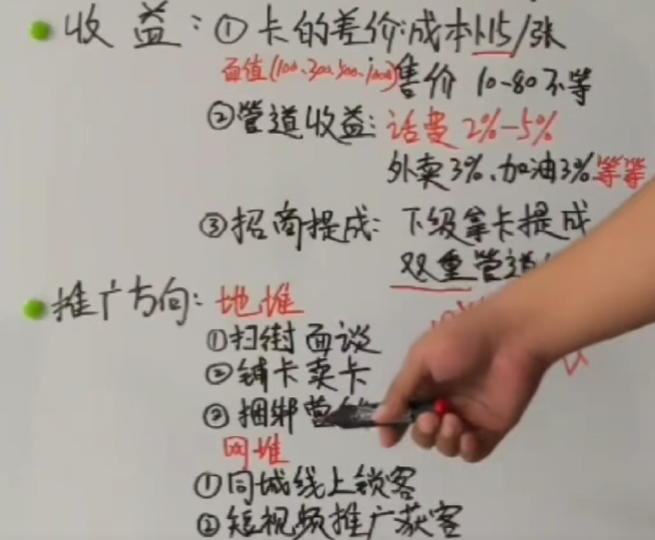 收益：①卡的差价：成本1.15/张
面值(100、300、500、1000)售价 10-80不等
②管道收益：话费2%-5%
外卖3%、加油3%等等
③招商提成：下级拿卡提成
双重管道
推广方向：地堆
①扫街面谈
②铺卡卖卡
③捆绑营
网堆
①同城线上锁客
②短视频推广获客